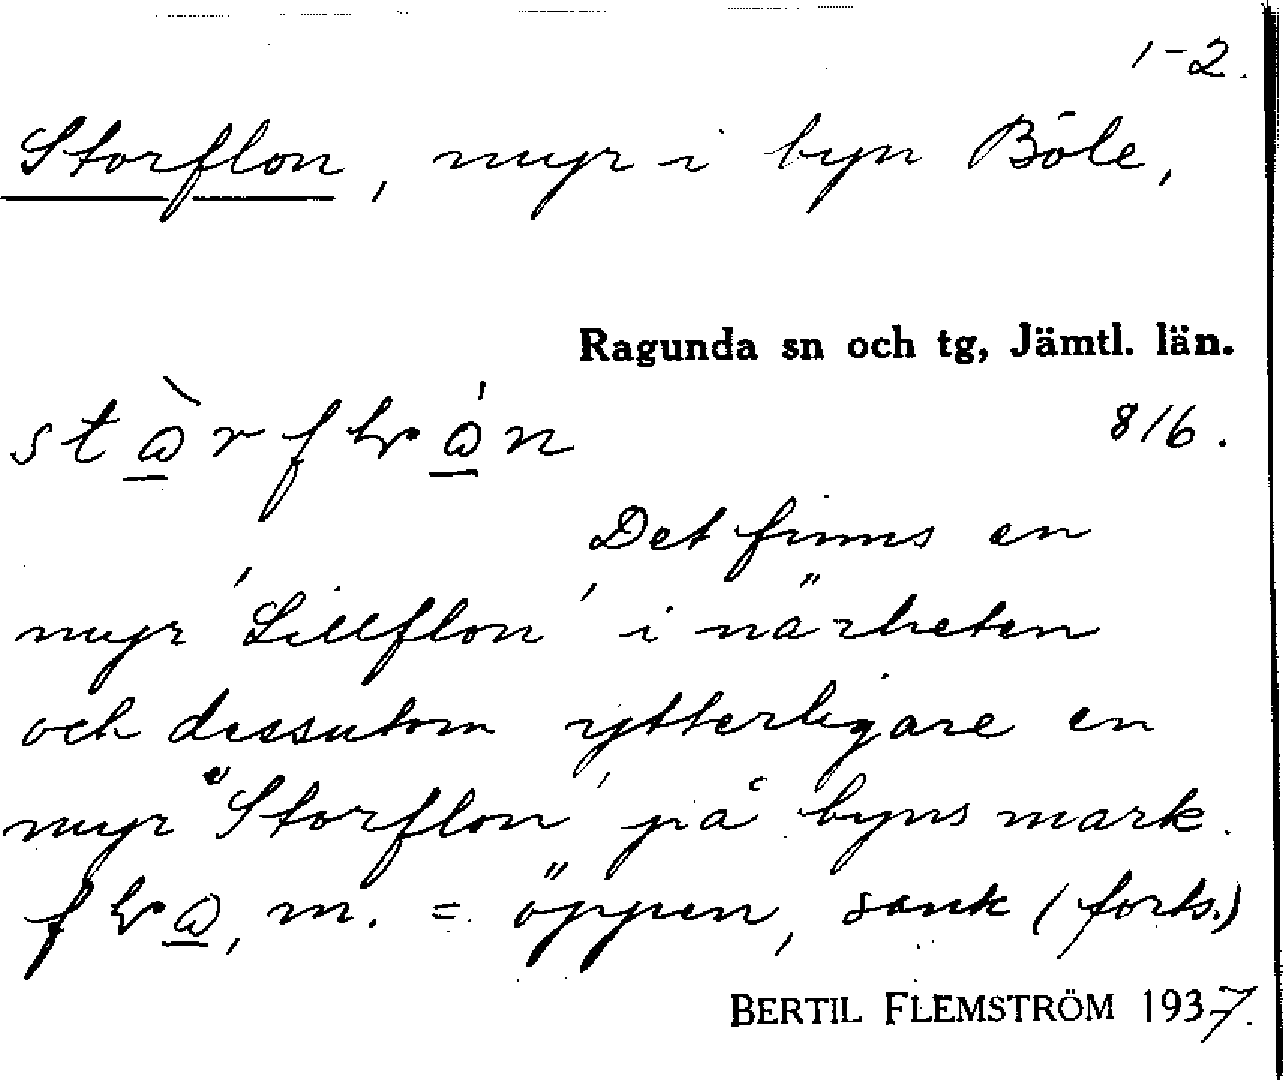 1-2.
Storflon, myr i byn Böle,
Ragunda sn och tg, Jämtl. län.
8/6.
Det finns en
myr 'Lillflon' i närheten
och dessutom ytterligare en
myr "Storflon' på byns mark.
m. = öppen, sank (forts.)
BERTIL FLEMSTRÖM 1937.